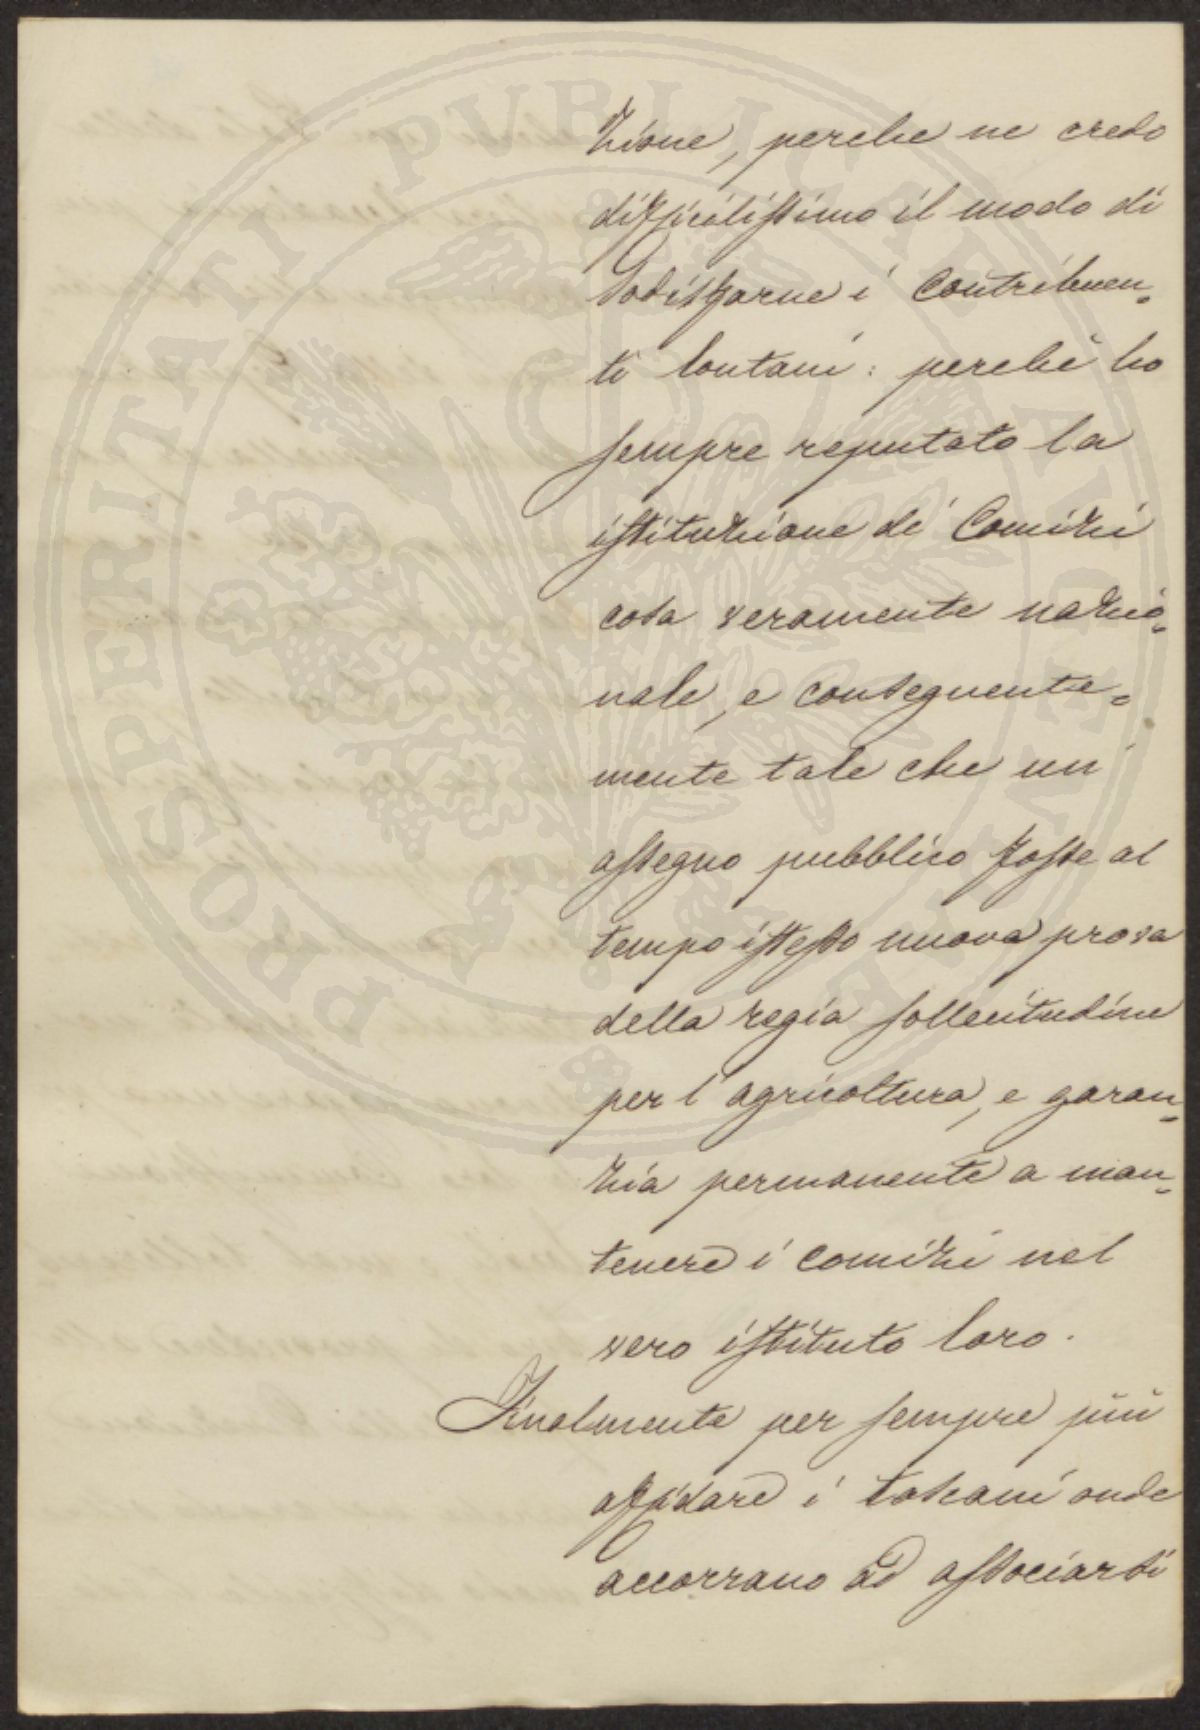 PROSPERITATI PUBLICAE AUGENDAE
zione, perche ne credo
difficilissimo il modo di
sodisfarne i contribuen=
ti lontani: perchè ho
sempre reputato la
istituzione de' Comizi
cosa veramente nazio=
nale, e conseguente=
mente tale che un'
assegno pubblico fosse al
tempo istesso nuova prova
della regia sollecitudine
per l'agricoltura, e garan=
zia permanente a man=
tenere i comizi nel
vero istituto loro.
Finalmente per sempre più
affidare i toscani onde
accorrano ad associarsi